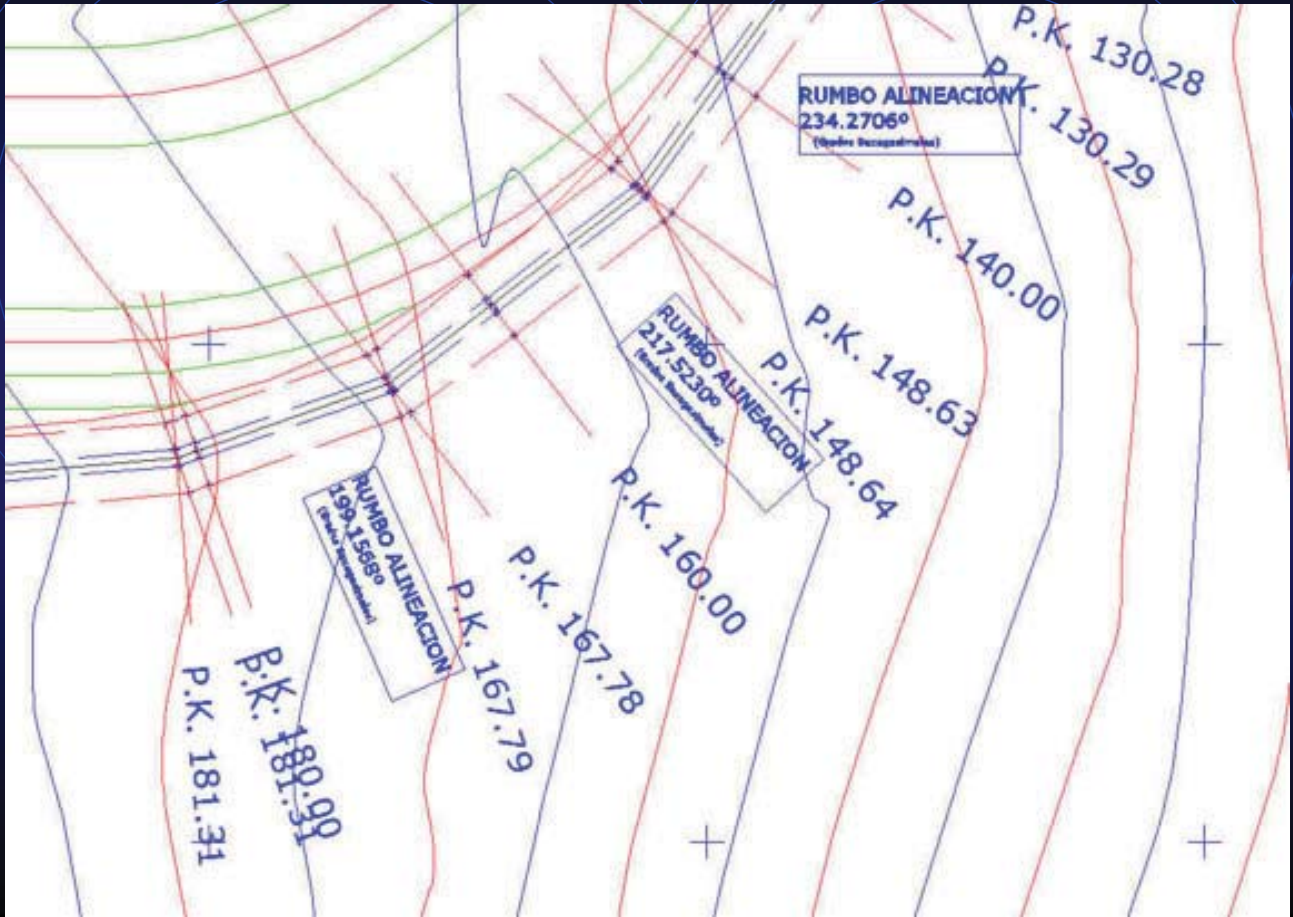 P.K. 130.28
P.K. 130.29
RUMBO ALINEACION
234.2706º
(Grados Sexagesimales)
P.K. 140.00
P.K. 148.63
P.K. 148.64
RUMBO ALINEACION
217.5230º
P.K. 160.00
P.K. 167.78
P.K. 167.79
RUMBO ALINEACION
199.1568º
P.K. 180.00
P.K. 181.31
P.K. 181.31